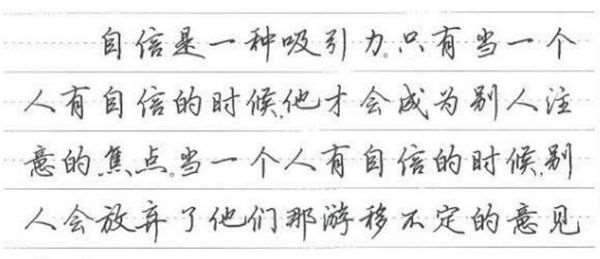 自信是一种吸引力。只有当一个
人有自信的时候，他才会成为别人注
意的焦点。当一个人有自信的时候，别
人会放弃了他们那游移不定的意见